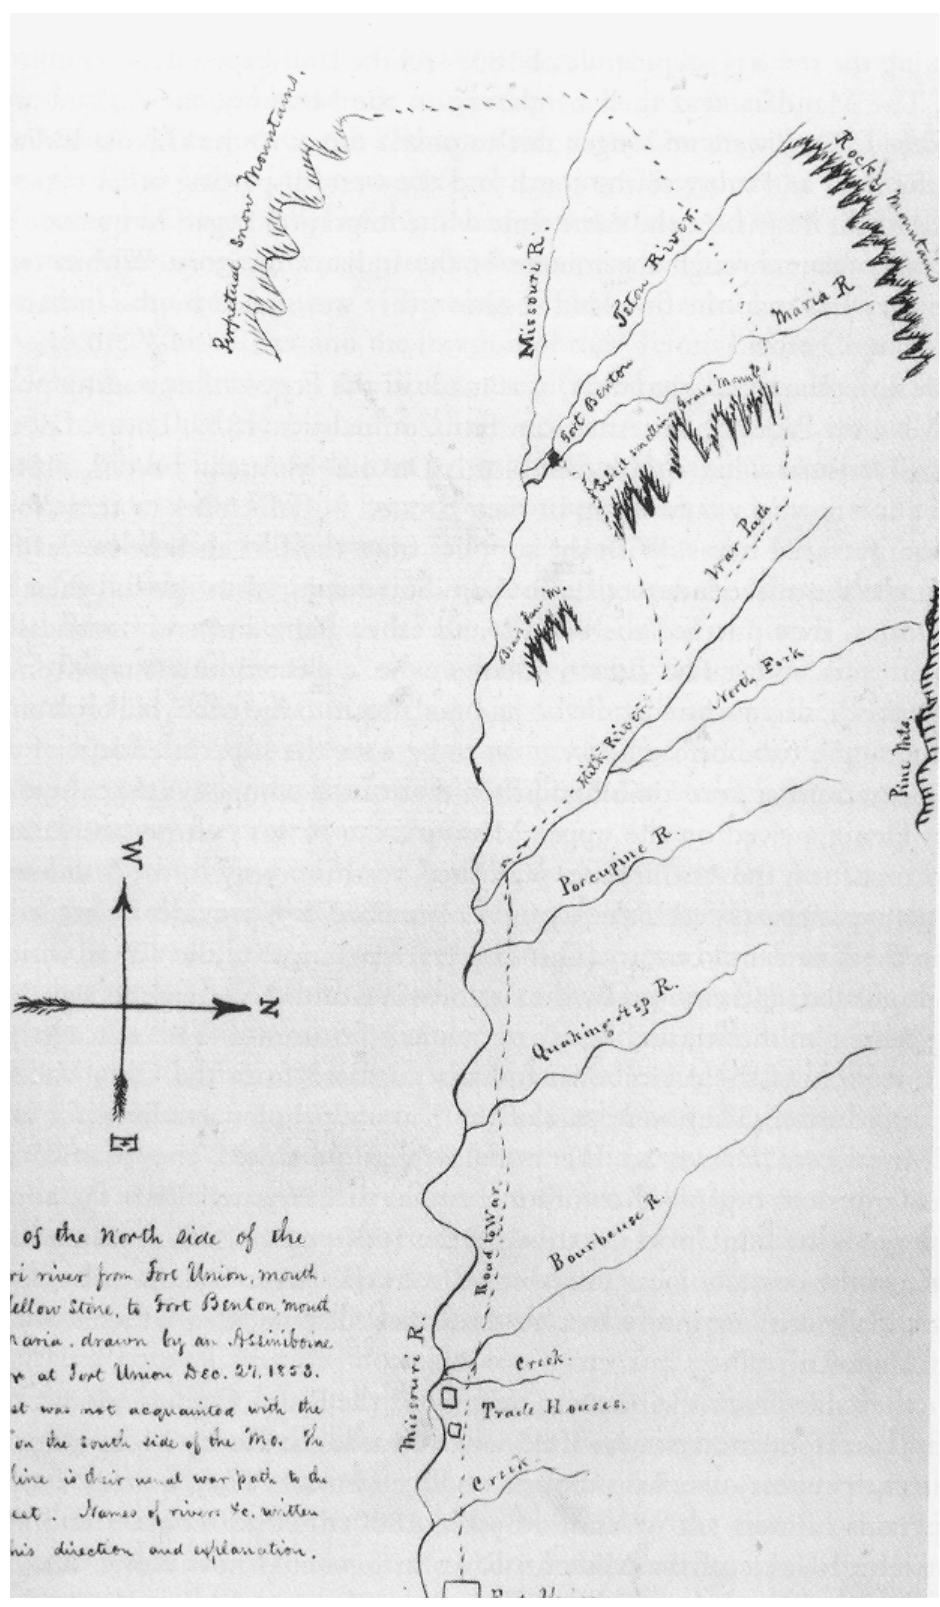 Perpetual Snow Mountains.
Rocky Mountains
Missouri R.
Teton River.
Maria R
Fort Benton
Sweet smelling Grass Mount
War Path
Bear Paw M
North Fork
Milk River
Pine Mts.
Porcupine R
W
N
E
Quaking Asp R.
Road to War
Bourbeuse R
Missouri R.
Creek
Trade Houses.
Creek
of the North side of the
ri river from Fort Union, mouth
ellow Stone, to Fort Benton, mouth
maria. drawn by an Assiniboine
r at Fort Union Dec. 27. 1853.
st was not acquainted with the
on the South side of the Mo. The
line is their usual war path to the
eet. Names of rivers &c. written
his direction and explanation.